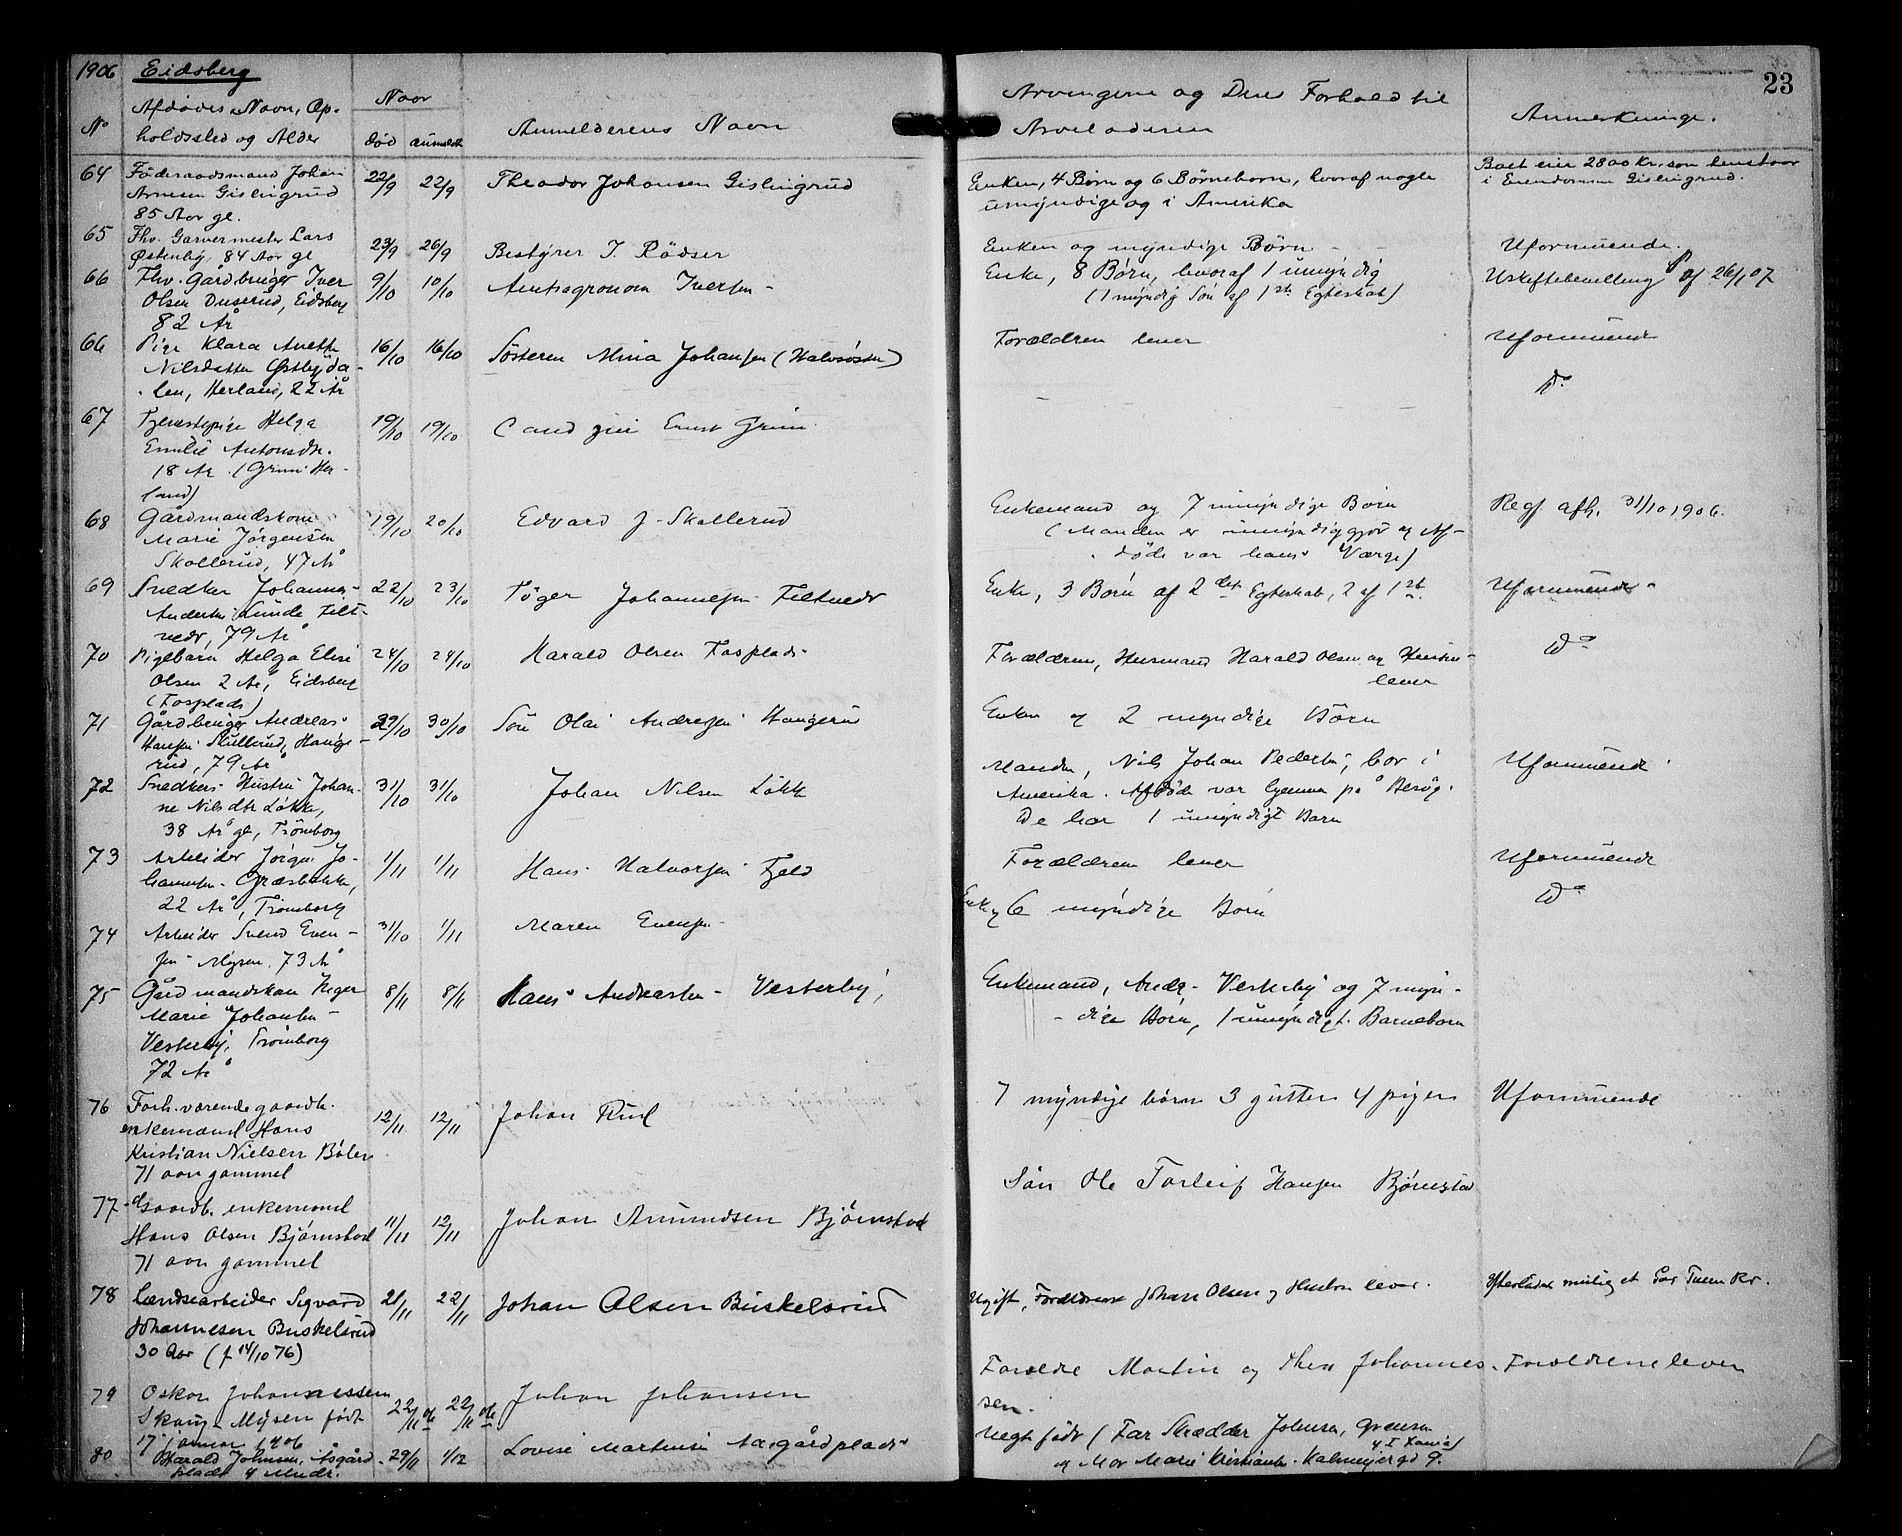 1906 Eidsberg
23
No
Afdødes Navn, Op-
holdssted og Alder
Naar
død anmeldt
Anmelderens Navn
Arvingerne og Deres Forhold til
Arveladeren
Anmerkninge.
64 Föderaadsmand Johan
Arnesen Gislingrud
85 Aar gl.
22/9 22/9 Theodor Johansen Gislingrud
Enken, 4 Børn og 6 Børnebørn, hvoraf nogle
umyndige og i Amerika
Boet eier 2800 Kr. som henstaar
i Eiendommen Gislingrud.
65 Fhv. Garvermester Lars
Østenby, 84 Aar gl
23/9 26/9 Bestyrer J. Rödser
Enken og myndige Börn
Uformuende.
66 Fhv. Gårdbruger Iver
Olsen Duserud, Eidsberg
82 År
9/10 10/10 Amtsagronom Iversen
Enke, 8 Børn, hvoraf 1 umyndig
(1 myndig Søn af 1ste Egteskab)
Uskiftebevilling af 26/1 07
66 Pige Klara Anette
Nilsdatter Østbyda-
len, Herland, 22 År
16/10 16/10 Søsteren Mina Johansen (Halvsøster)
Forældren lever
Uformuende
do
67 Tjenestepige Helga
Emilie Antonsdtr.
18 År. (Grimi Her-
land)
19/10 19/10 Cand Ernst Grimi
68 Gårdmandskone
Marie Jørgensen
Skallerud, 47 År
19/10 20/10 Edvard J. Skallerud
Enkemand og 7 umyndige Børn
(Manden er umyndiggjor og Af-
døde var hans Værge)
Reg. afh. 31/10 1906.
69 Snedker Johannes
Anderssen Lunde Felt-
vedt, 79 År
22/10 23/10 Töger Johannesen Feltvedt
Enke, 3 Børn af 2det Egteskab, 2 af 1st
Uformuende
70 Pigebarn Helga Elise
Olsen 2 År, Eidsberg
(Fosplads)
24/10 24/10 Harald Olsen Fosplads
Forældrene, Husmand Harald Olsen og Hustru
lever
do
71 Gårdbruger Andreas
Hansen Skullerud, Hauge-
rud, 79 År
29/10 30/10 Søn Olai Andresen Haugerud
Enken og 2 myndige Børn
72 Snedkers Hustru Johan-
ne Nilsdtr Løkke,
38 År gl, Trömborg
31/10 31/10 Johan Nilsen Løkke
Manden, Nils Johan Pedersen, bor i
Amerika. Afdøde var hjemme på Besøg.
De har 1 umyndigt Barn
Uformuende
73 Arbeider Jörgen Jo-
hannesen Græsbakke,
22 År, Trömborg
1/11 1/11 Hans Halvorsen Fjeld
Forældrene lever
Uformuende
74 Arbeider Svend Even-
sen Mysen, 73 År
31/10 1/11 Maren Evensen
Enke og 6 myndige Børn
do
75 Gårdmandskone Inger
Marie Johansen
Vesterby, Trömborg
72 År
8/11 8/11 Hans Andreassen Vesterby,
Enkemand, Andr. Vesterby og 7 myn-
dige Børn, 1 umyndigt Barnebarn
76 Forh. værende gaardb.
enkemand Hans
Kristian Nielsen Bøler
71 aar gammel
12/11 12/11 Johan Rud
7 myndige børn 3 gutter 4 piger
Uformuende
77 Gaardb. enkemand
Hans Olsen Bjørnstad
71 aar gammel
11/11 12/11 Johan Amundsen Bjørnstad
Søn Ole Torleif Hansen Bjørnstad
78 Lændsearbeider Sigvard
Johannesen Buskelsrud
30 Aar (f 14/10 76)
21/11 22/11 Johan Olsen Buskelsrud
Ugift, Forældrene Johan Olsen og Hustru lever.
Efterlader mulig et Par Tusen Kr.
79 Oskar Johannessen
Skaug Mysen født
17 januar 1906
22/11 06 22/11 06 Johan Johansen
Forældre Martin og Thea Johannes-
sen.
Forældrene lever
80 Harald Johnsen, Åsgård
plads 4 Mndr.
29/11 1/12 Lovise Martinsen Aasgårdplads
Uegt født (Far Skrædder Johnsen, Grensen
4 I Kania)
og Mor Marie Kristiansen Kalmeyergd 9.